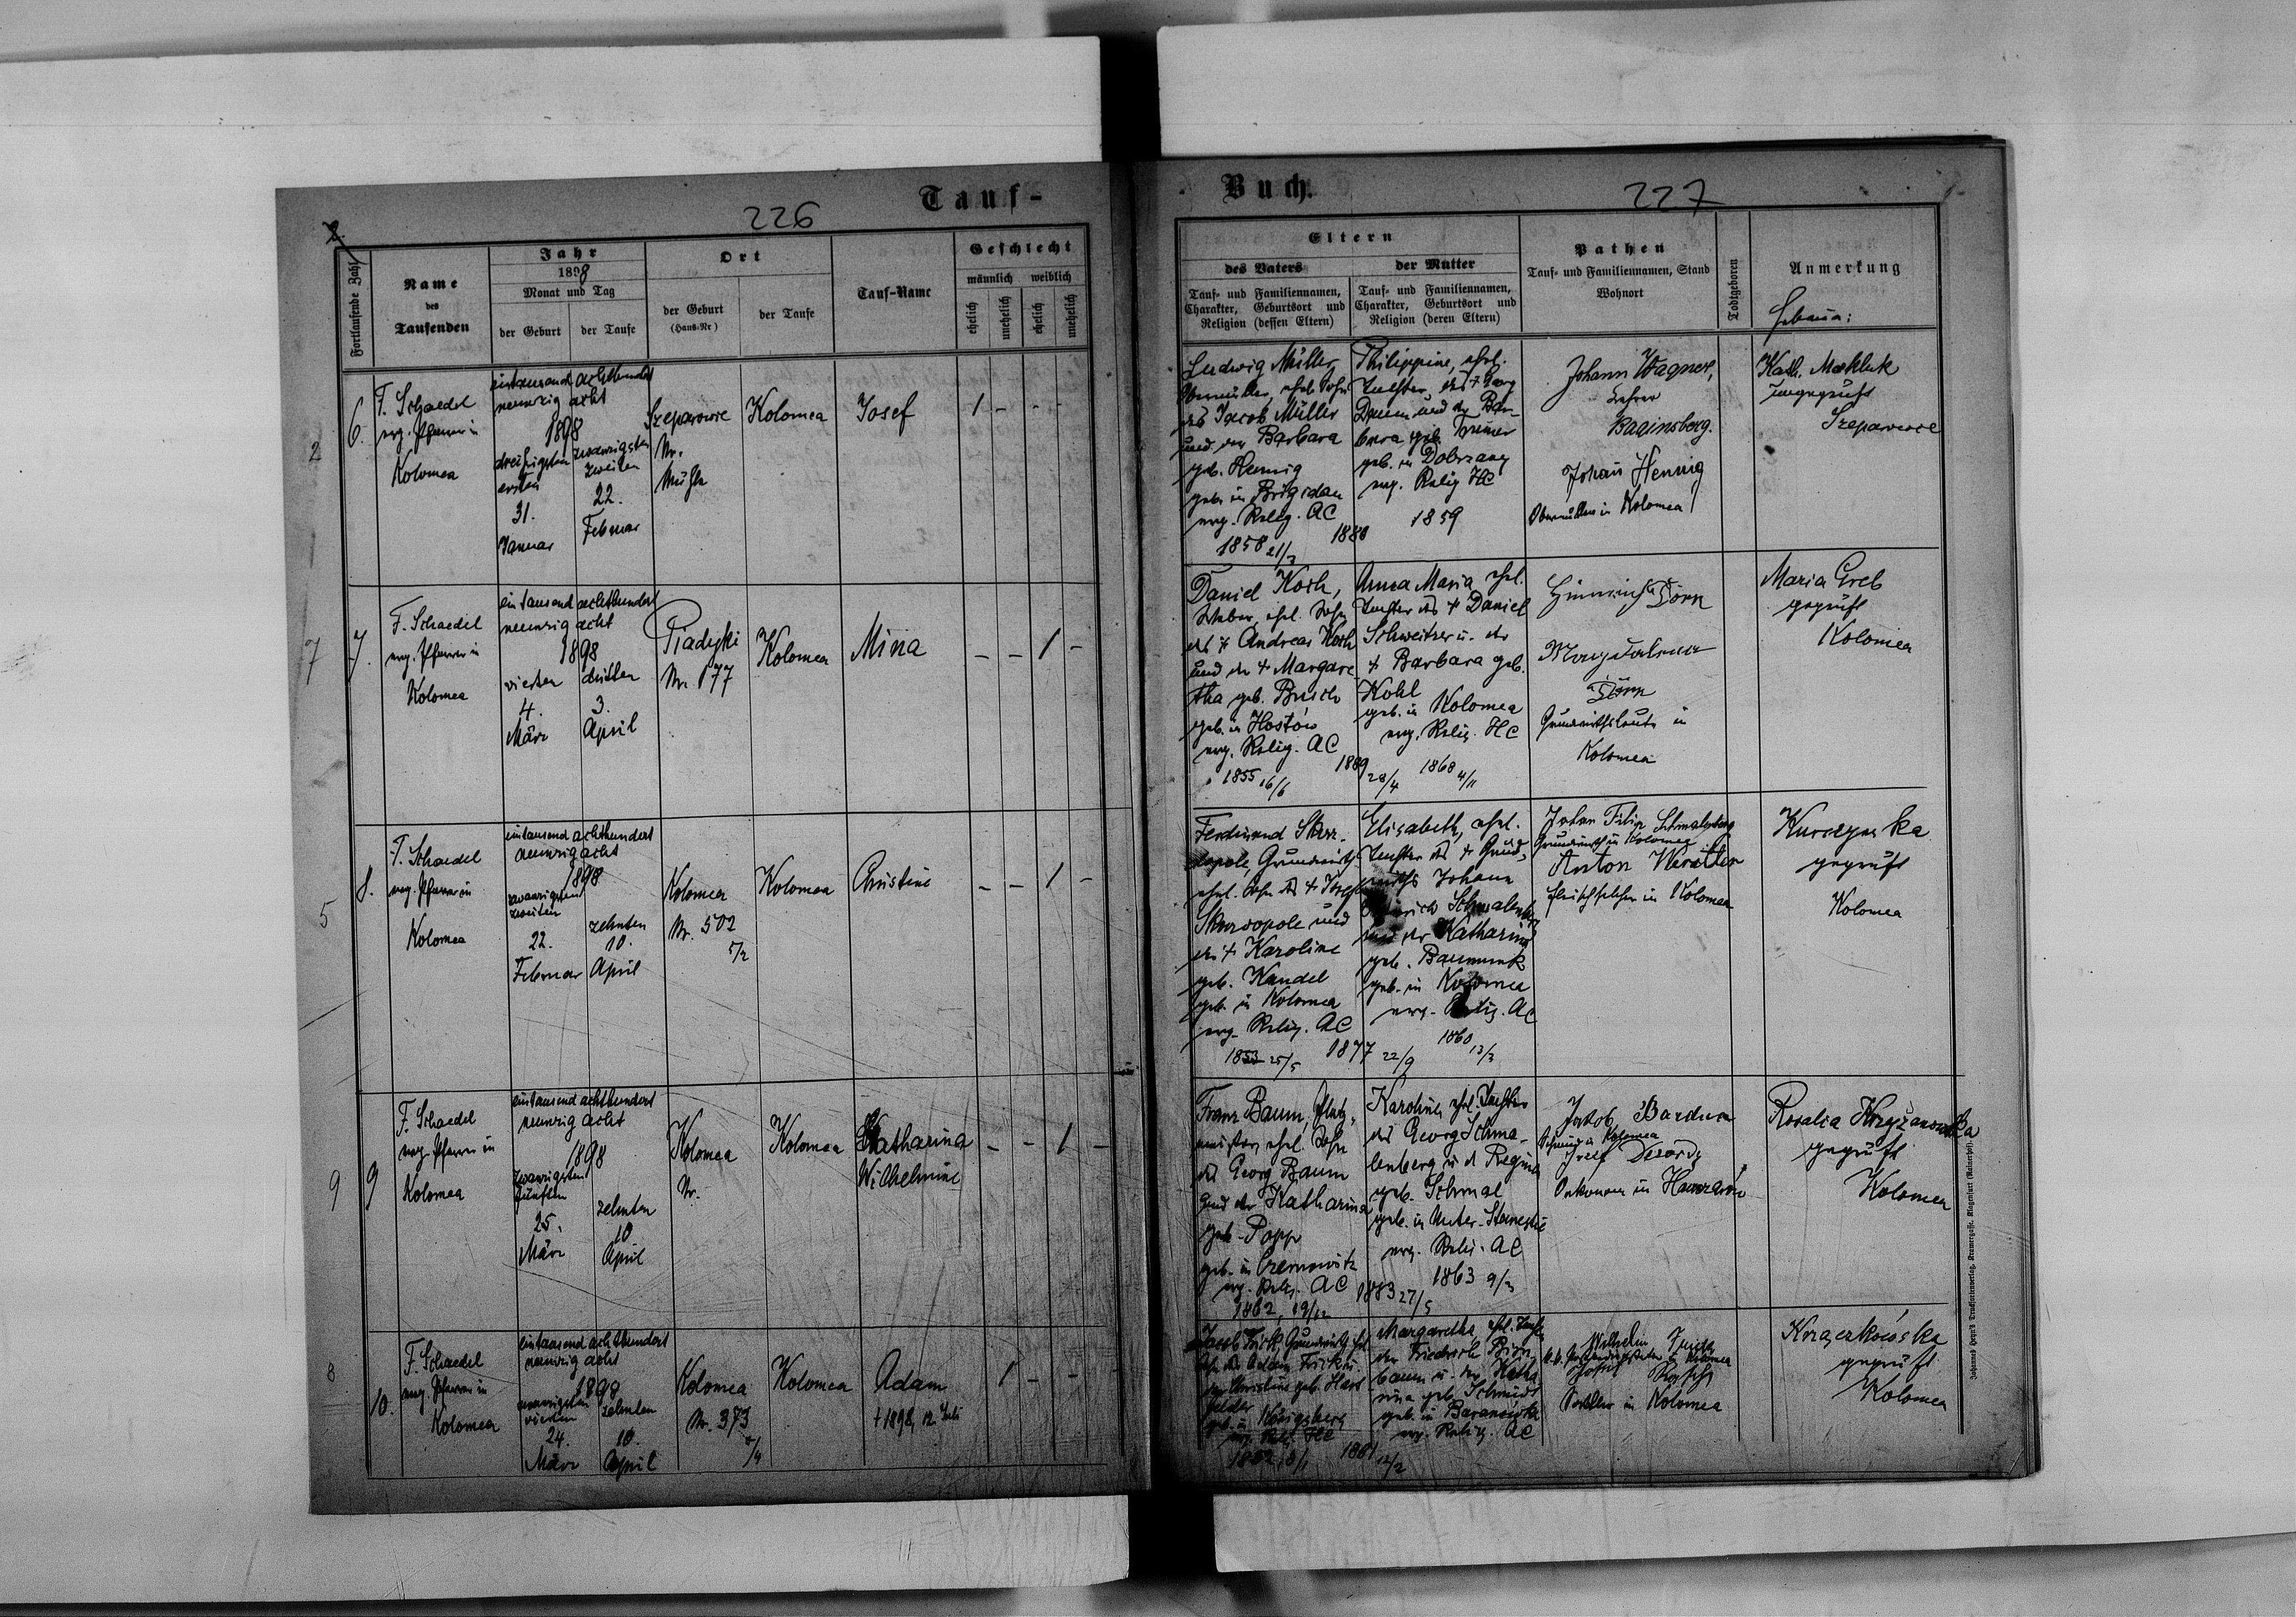 Tauf-
226
2.
Fortlaufende Zahl
Name
des
Taufenden
Jahr
1898
Monat und Tag
der Geburt
der Taufe
Ort
der Geburt
(Haus-Nr)
der Taufe
Tauf-Name
Geschlecht
männlich
weiblich
ehelich
unehelich
ehelich
unehelich
2
6.
F. Schaedel
evg. Pfarrer in
Kolomea
eintausend achthundert
neunzig acht
1898
dreißigsten
ersten
31.
Januar
zwanzigsten
zweiten
22.
Februar
Szeparowce
Nr.
Mühle
Kolomea
Josef
1 - - -
7
7.
F. Schaedel
evg. Pfarrer in
Kolomea
ein tausend achthundert
neunzig acht
1898
vierten
4.
März
dritten
3.
April
Piadyki
Nr. 177
Kolomea
Mina
- - 1 -
5
8.
F. Schaedel
evg. Pfarrer in
Kolomea
eintausend achthundert
neunzig acht
1898
zwanzigsten
zweiten
22.
Februar
zehnten
10.
April
Kolomea
Nr. 502
5/2
Kolomea
Christine
- - 1 -
9
9
F. Schaedel
evg. Pfarrer in
Kolomea
eintausend achthundert
neunzig acht
1898
zwanzigsten
fünften
25.
März
zehnten
10
April
Kolomea
Nr.
Kolomea
Katharina
Wilhelmine
- - 1 -
8
10.
F. Schaedel
evg. Pfarrer in
Kolomea
eintausend achthundert
neunzig acht
1898
zwanzigsten
vierten
24.
März
zehnten
10.
April
Kolomea
Nr. 373
/4
Kolomea
Adam
† 1898, 12. Juli
1 - - -
Buch.
227
Eltern
des Vaters
Tauf- und Familiennamen,
Charakter, Geburtsort und
Religion (dessen Eltern)
der Mutter
Tauf- und Familiennamen,
Charakter, Geburtsort und
Religion (deren Eltern)
Pathen
Tauf- und Familiennamen, Stand
Wohnort
Todtgeboren
Anmerkung
Hebamme:
Ludwig Müller,
Obermüller, ehel. Sohn
des Jacob Müller
und der Barbara
geb. Hennig
geb. in Brigidau
evg. Relig. AC
1858 21/3
1880
Philippine, ehel.
Tochter des † Georg
Daum und der Bar-
bara geb.
geb. in Dobrzany
evg. Relig HC
1859
Johann Wagner,
Lehrer
Baginsberg.
Johann Hennig
Obermüller in Kolomea
Kath. Makluk
ungeprüft
Szeparowce
Daniel Koch,
Weber, ehel. Sohn
des † Andreas Koch
und der † Margare
tha geb. Busch
geb. in Hostów
evg. Relig. AC
1855 16/6
1889 28/4
Anna Maria, ehel.
Tochter des † Daniel
Schweitzer u. der
† Barbara geb.
Kohl
geb. in Kolomea
evg. Relig. HC
1868 4/11
Heinrich Dörn
Magdalena
Dörn
Grundwirthsleute in
Kolomea
Maria Greb
geprüft
Kolomea
Ferdinand Skor-
dopole, Grundwirth
ehel. Sohn des † Josef
Skordopole und
der † Karoline
geb. Wandel
geb. in Kolomea
evg. Relig. AC
1853 25/5
1877 22/9
Elisabeth, ehel.
Tochter des † Grund-
wirths Johann
Schmalenberg
und der Katharina
geb.
geb. in Kolomea
evg. Relig. AC
1860 13/3
Johan Filip Schmalenberg
Grundwirth in Kolomea
Anton
Fleischselcher in Kolomea
geprüft
Kolomea
Franz Baum, Platz-
meister, ehel. Sohn
des Georg Baum
und der Katharina
geb. Popp
geb. in Czernowitz
evg. Relig. AC
1862, 19/12
1883 27/5
Karoline, ehel. Tochter
des Georg Schma-
lenberg u. d. Regina
geb. Schmal
geb. in Unter-Stanestie
evg. Relig. AC
1863 9/3
Jakob
Schmied in Kolomea
Josef
Oekonom in
Rosalia Krzyżanowska
geprüft
Kolomea
Jacob Frick, Grundwirth, ehel.
Sohn des Adam Frick u.
der Christine geb. Hart-
felder
geb. in Königsberg
evg. Relig. HC
1852, 8/1
1881 12/2
Margaretha, ehel. Tochter
des Friedrich Birn-
baum u. der Katha
rina geb. Schmidt
geb. in Baranówka
evg. Relig. AC
Wilhelm
in Kolomea
Sattler in Kolomea
geprüft
Kolomea